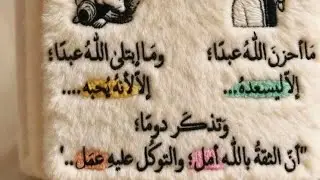 ما أحزن اللّٰه عبدًا؛
إلّا ليسعده...
وما إبتلىٰ اللّٰهُ عبدًا؛
إلّا لأنهُ يُحبه....
وَتذكَر دومًا؛
"أنّ الثقةُ باللّٰه أمَل؛ والتوكُل عليهِ عمَل..'